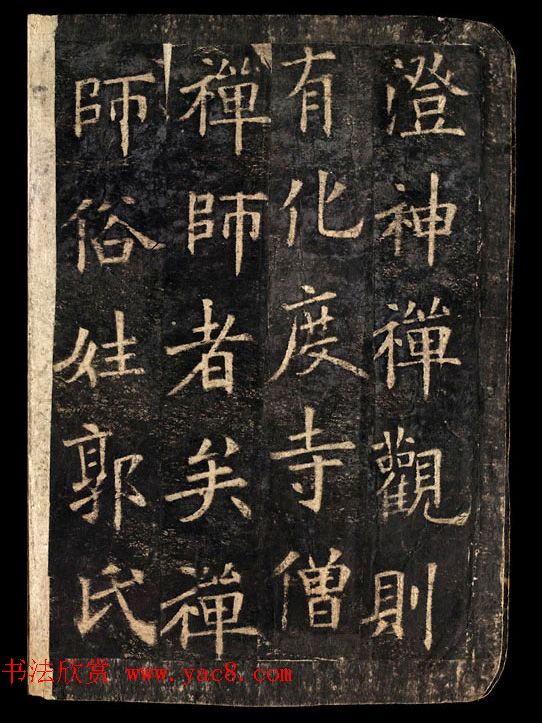 澄神禪觀則
有化度寺僧
禪師者矣禪
師俗姓郭氏
书法欣赏 www.yac8.com